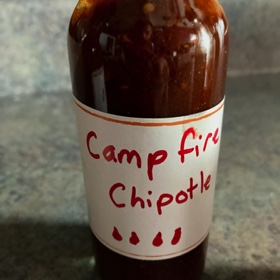 Camp fire
Chipotle